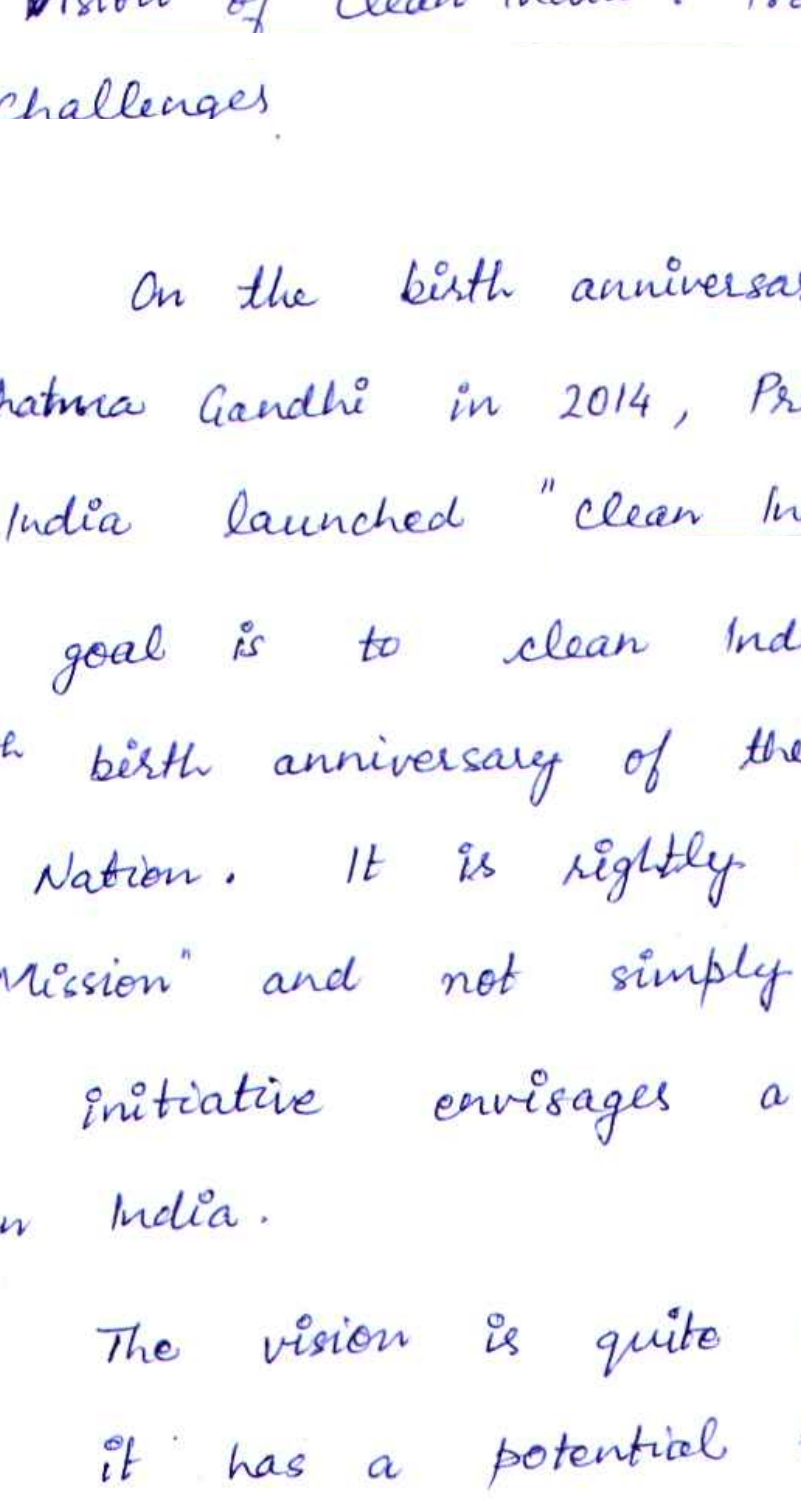 Vision of Clean India :
Challenges
On the birth anniversa
hatma Gandhi in 2014, Pr
India launched "clean In
goal is to clean Ind
h birth anniversary of the
Nation. It is rightly
Mission" and not simply
initiative envisages a
n India.
The vision is quite
it has a potential